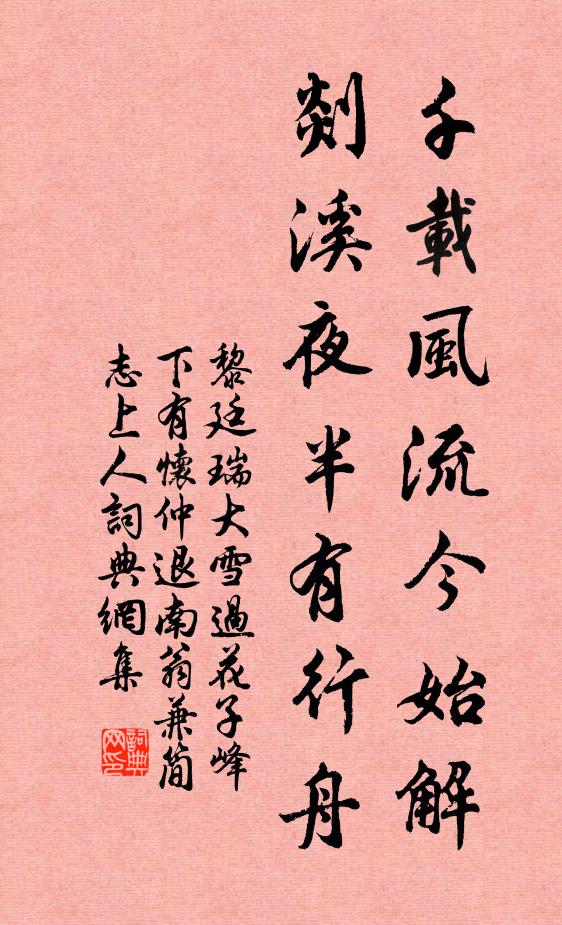 千載風流今始解
剡溪夜半有行舟
黎廷瑞大雪過花子峰
下有懷仲退南翁兼簡
志上人詞典網集
詞典網印